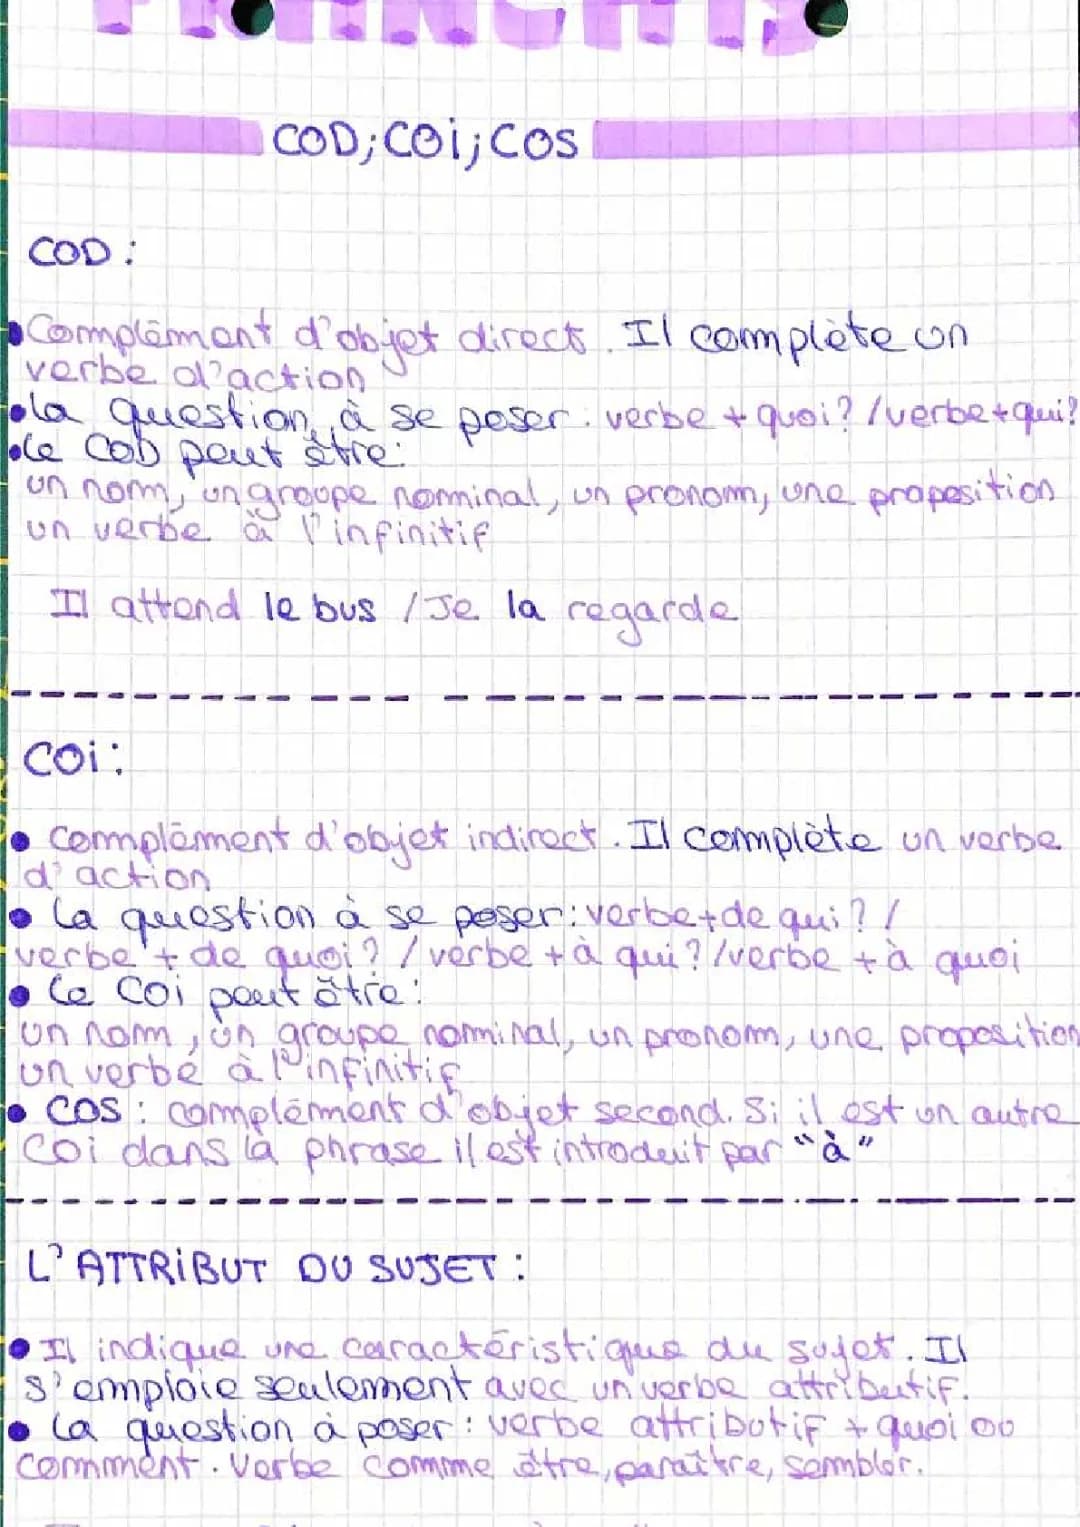 FRANÇAIS
COD; COi; COS
COD :
Complément d'objet direct. Il complète un
verbe d'action
la question à se poser : verbe + quoi? /verbe+qui?
le COD peut être:
un nom, un groupe nominal, un pronom, une proposition
un verbe à l'infinitif
Il attend le bus / Je la regarde
COi :
complément d'objet indirect. Il complète un verbe
d'action
la question à se poser: verbe+de qui? /
verbe + de quoi? / verbe + à qui? /verbe + à quoi
le COi peut être :
un nom, un groupe nominal, un pronom, une proposition
un verbe à l'infinitif
COS : complément d'objet second. Si il est un autre
COi dans la phrase il est introduit par "à"
L'ATTRiBUT DU SUJET :
Il indique une caractéristique du sujet. Il
s'emploie seulement avec un verbe attributif.
la question à poser : verbe attributif + quoi ou
comment. Verbe comme être, paraître, sembler.